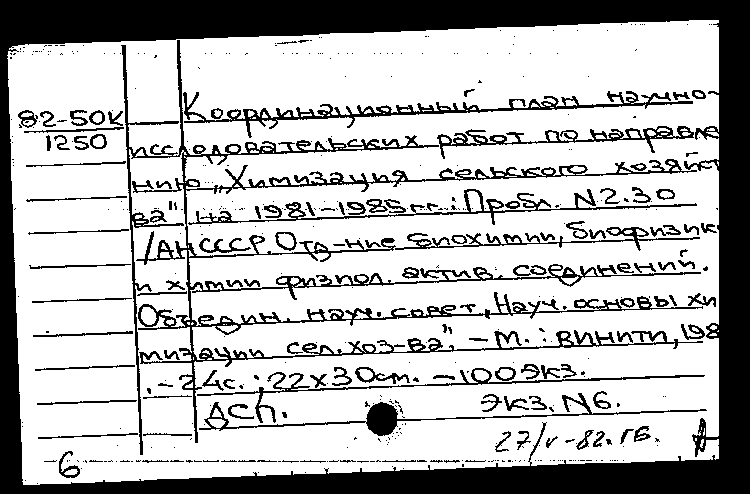 82-50К
1250
Координационный план научно-
исследовательских работ по направле
нию „Химизация сельского хозяйст
ва" на 1981-1985гг.: Пробл. N2.30
/АН СССР. Отд-ние биохимии, биофизик
и химии физиол. актив. соединений.
Объедин. науч. совет „Науч. основы хи
мизации сел. хоз-ва". - М. : ВИНИТИ, 198
. - 24с. ; 22х30см. - 100 экз.
ДСП. экз. N6.
27/V-82. ГБ.
6